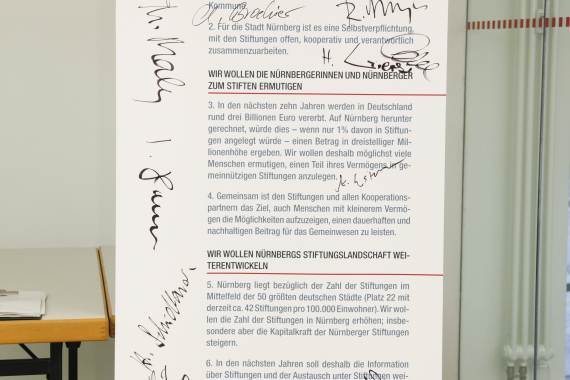 Kommune.
2. Für die Stadt Nürnberg ist es eine Selbstverpflichtung,
mit den Stiftungen offen, kooperativ und verantwortlich
zusammenzuarbeiten.
WIR WOLLEN DIE NÜRNBERGERINNEN UND NÜRNBERGER
ZUM STIFTEN ERMUTIGEN
3. In den nächsten zehn Jahren werden in Deutschland
rund drei Billionen Euro vererbt. Auf Nürnberg herunter
gerechnet, würde dies – wenn nur 1% davon in Stiftun-
gen angelegt würde – einen Betrag in dreistelliger Mil-
lionenhöhe ergeben. Wir wollen deshalb möglichst viele
Menschen ermutigen, einen Teil ihres Vermögens in ge-
meinnützigen Stiftungen anzulegen.
4. Gemeinsam ist den Stiftungen und allen Kooperations-
partnern das Ziel, auch Menschen mit kleinerem Vermö-
gen die Möglichkeiten aufzuzeigen, einen dauerhaften und
nachhaltigen Beitrag für das Gemeinwesen zu leisten.
WIR WOLLEN NÜRNBERGS STIFTUNGSLANDSCHAFT WEI-
TERENTWICKELN
5. Nürnberg liegt bezüglich der Zahl der Stiftungen im
Mittelfeld der 50 größten deutschen Städte (Platz 22 mit
derzeit ca. 42 Stiftungen pro 100.000 Einwohner). Wir wol-
len die Zahl der Stiftungen in Nürnberg erhöhen; insbe-
sondere aber die Kapitalkraft der Nürnberger Stiftungen
steigern.
6. In den nächsten Jahren soll deshalb die Information
über Stiftungen und der Austausch unter Stiftungen wei-